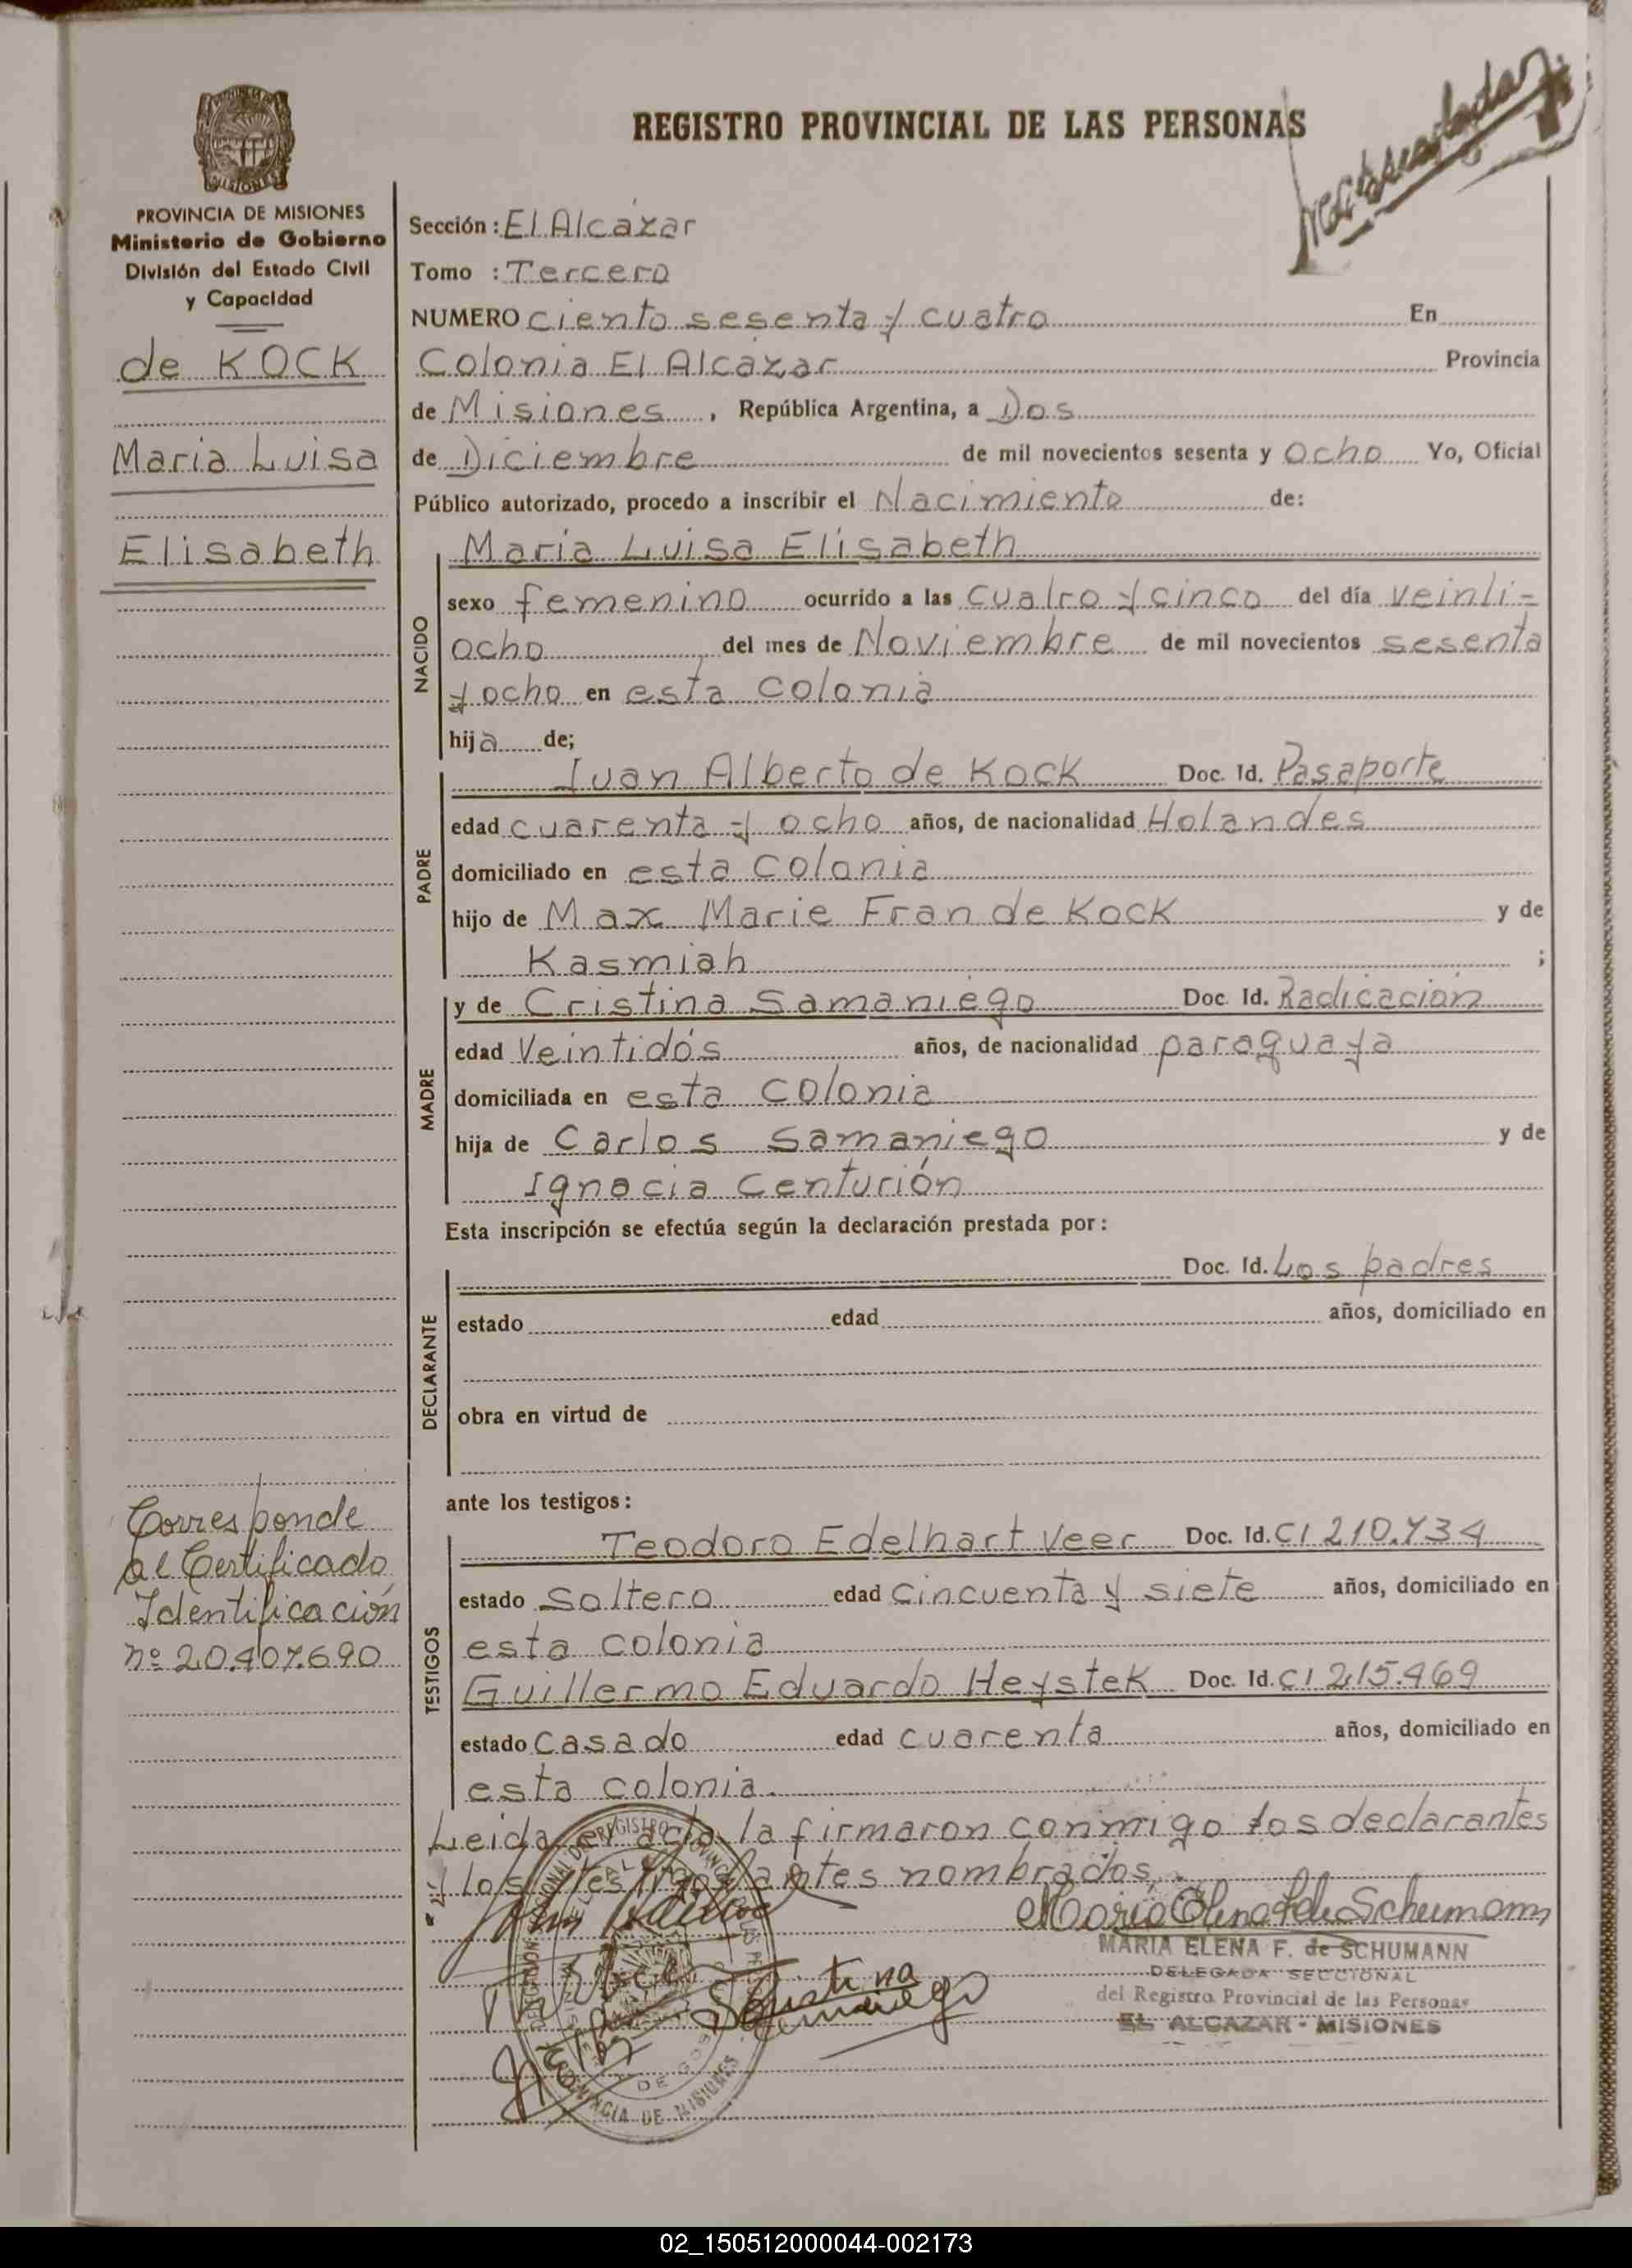 REGISTRO PROVINCIAL DE LAS PERSONAS
MISIONES
PROVINCIA DE MISIONES
Ministerio de Gobierno
División del Estado Civil
y Capacidad
de KOCK
Maria Luisa
Elisabeth
Corresponde
al Certificado
Identificación
nº 20.407.690
Sección: El Alcázar
Tomo : Tercero
NUMERO ciento sesenta y cuatro En
Colonia El Alcázar Provincia
de Misiones, República Argentina, a Dos
de Diciembre de mil novecientos sesenta y Ocho Yo, Oficial
Público autorizado, procedo a inscribir el Nacimiento de:
Maria Luisa Elisabeth
NACIDO
sexo femenino ocurrido a las cuatro y cinco del día veinti=
ocho del mes de Noviembre de mil novecientos sesenta
y ocho en esta Colonia
hija de;
PADRE
Juan Alberto de Kock Doc. Id. Pasaporte
edad cuarenta y ocho años, de nacionalidad Holandes
domiciliado en esta Colonia
hijo de Max Marie Fran de Kock y de
Kasmiah ;
MADRE
y de Cristina Samaniego Doc. Id. Radicación
edad Veintidós años, de nacionalidad paraguaya
domiciliada en esta Colonia
hija de Carlos Samaniego y de
Ignacia Centurión
Esta inscripción se efectúa según la declaración prestada por:
DECLARANTE
Doc. Id. Los padres
estado edad años, domiciliado en
obra en virtud de
ante los testigos:
TESTIGOS
Teodoro Edelhart Veer Doc. Id. CI 210.734
estado Soltero edad Cincuenta y siete años, domiciliado en
esta colonia
Guillermo Eduardo Heystek Doc. Id. CI 215.469
estado Casado edad cuarenta años, domiciliado en
esta colonia.
Leida el acta, la firmaron conmigo los declarantes
y los testigos antes nombrados,
Maria Elena F de Schumann
MARIA ELENA F. de SCHUMANN
DELEGADA SECCIONAL
del Registro Provincial de las Personas
EL ALCAZAR - MISIONES
Cristina
Samaniego
PROVINCIA DE MISIONES
02_150512000044-002173